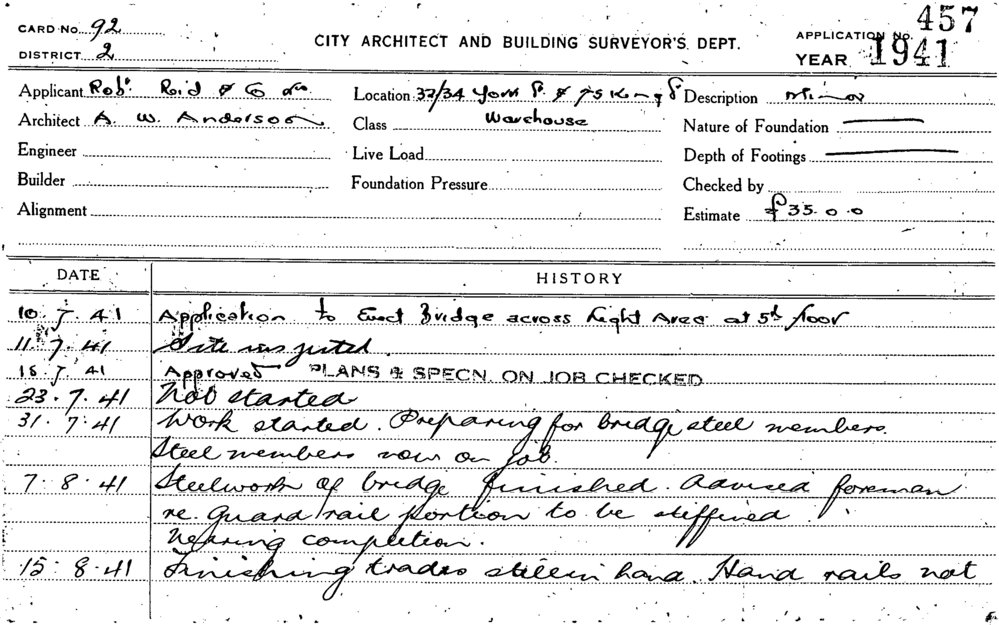 CARD No. 92
DISTRICT 2
CITY ARCHITECT AND BUILDING SURVEYOR'S DEPT.
APPLICATION No. 457
YEAR 1941
Applicant Robt. Reid & Co
Location 32/34 York St & 75 King St
Description Minor
Architect A. W. Anderson
Class Warehouse
Nature of Foundation
Engineer
Live Load
Depth of Footings
Builder
Foundation Pressure
Checked by
Alignment
Estimate £35.0.0
DATE HISTORY
10 7 41 Application to Erect Bridge across Light Area at 5th floor
11 7 41 Site inspected.
18 7 41 Approved PLANS & SPECN. ON JOB CHECKED
23.7.41 Not started
31.7.41 Work started. Preparing for bridge steel members.
Steel members now on job.
7.8.41 Steelwork of bridge finished. Advised foreman
re. guard rail portion to be stiffined.
Nearing completion.
15.8.41 Finishing trades still in hand. Hand rails not